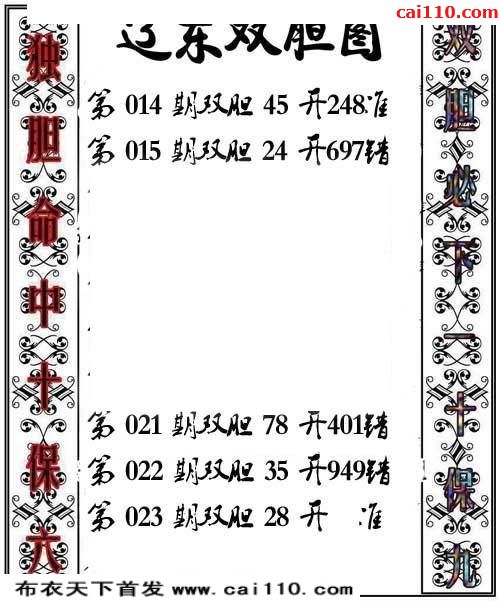 cai110.com
辽东双胆图
独胆命中十保六
第 014 期双胆 45 开248准
第 015 期双胆 24 开697错
第 021 期双胆 78 开401错
第 022 期双胆 35 开949错
第 023 期双胆 28 开 准
双胆必下一十保九
布衣天下首发 www.cai110.com